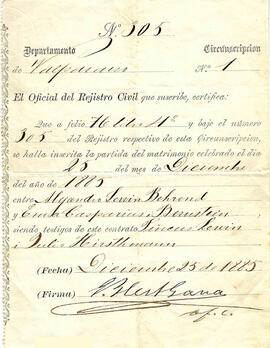 Nº 305
Departamento Circunscripcion
de Valparaiso Nº 1
El Oficial del Rejistro Civil que suscribe, certifica:
Que a folio 76 del 4º y bajo el número
305 del Rejistro respectivo de esta Circunscripcion,
se halla inscrita la partida del matrimonio celebrado el dia
25 del mes de Diciembre
del año de 1885
entre Alejandro Lewin Behrend
y Emma Casparius Bernstein,
siendo, testigos de este contrato Lewin
i Julio Hirschmann
(Fecha) Diciembre 25 de 1885
(Firma) Blest Gana
of. c.